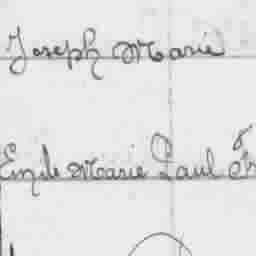 Joseph Marie
Emile Marie Paul